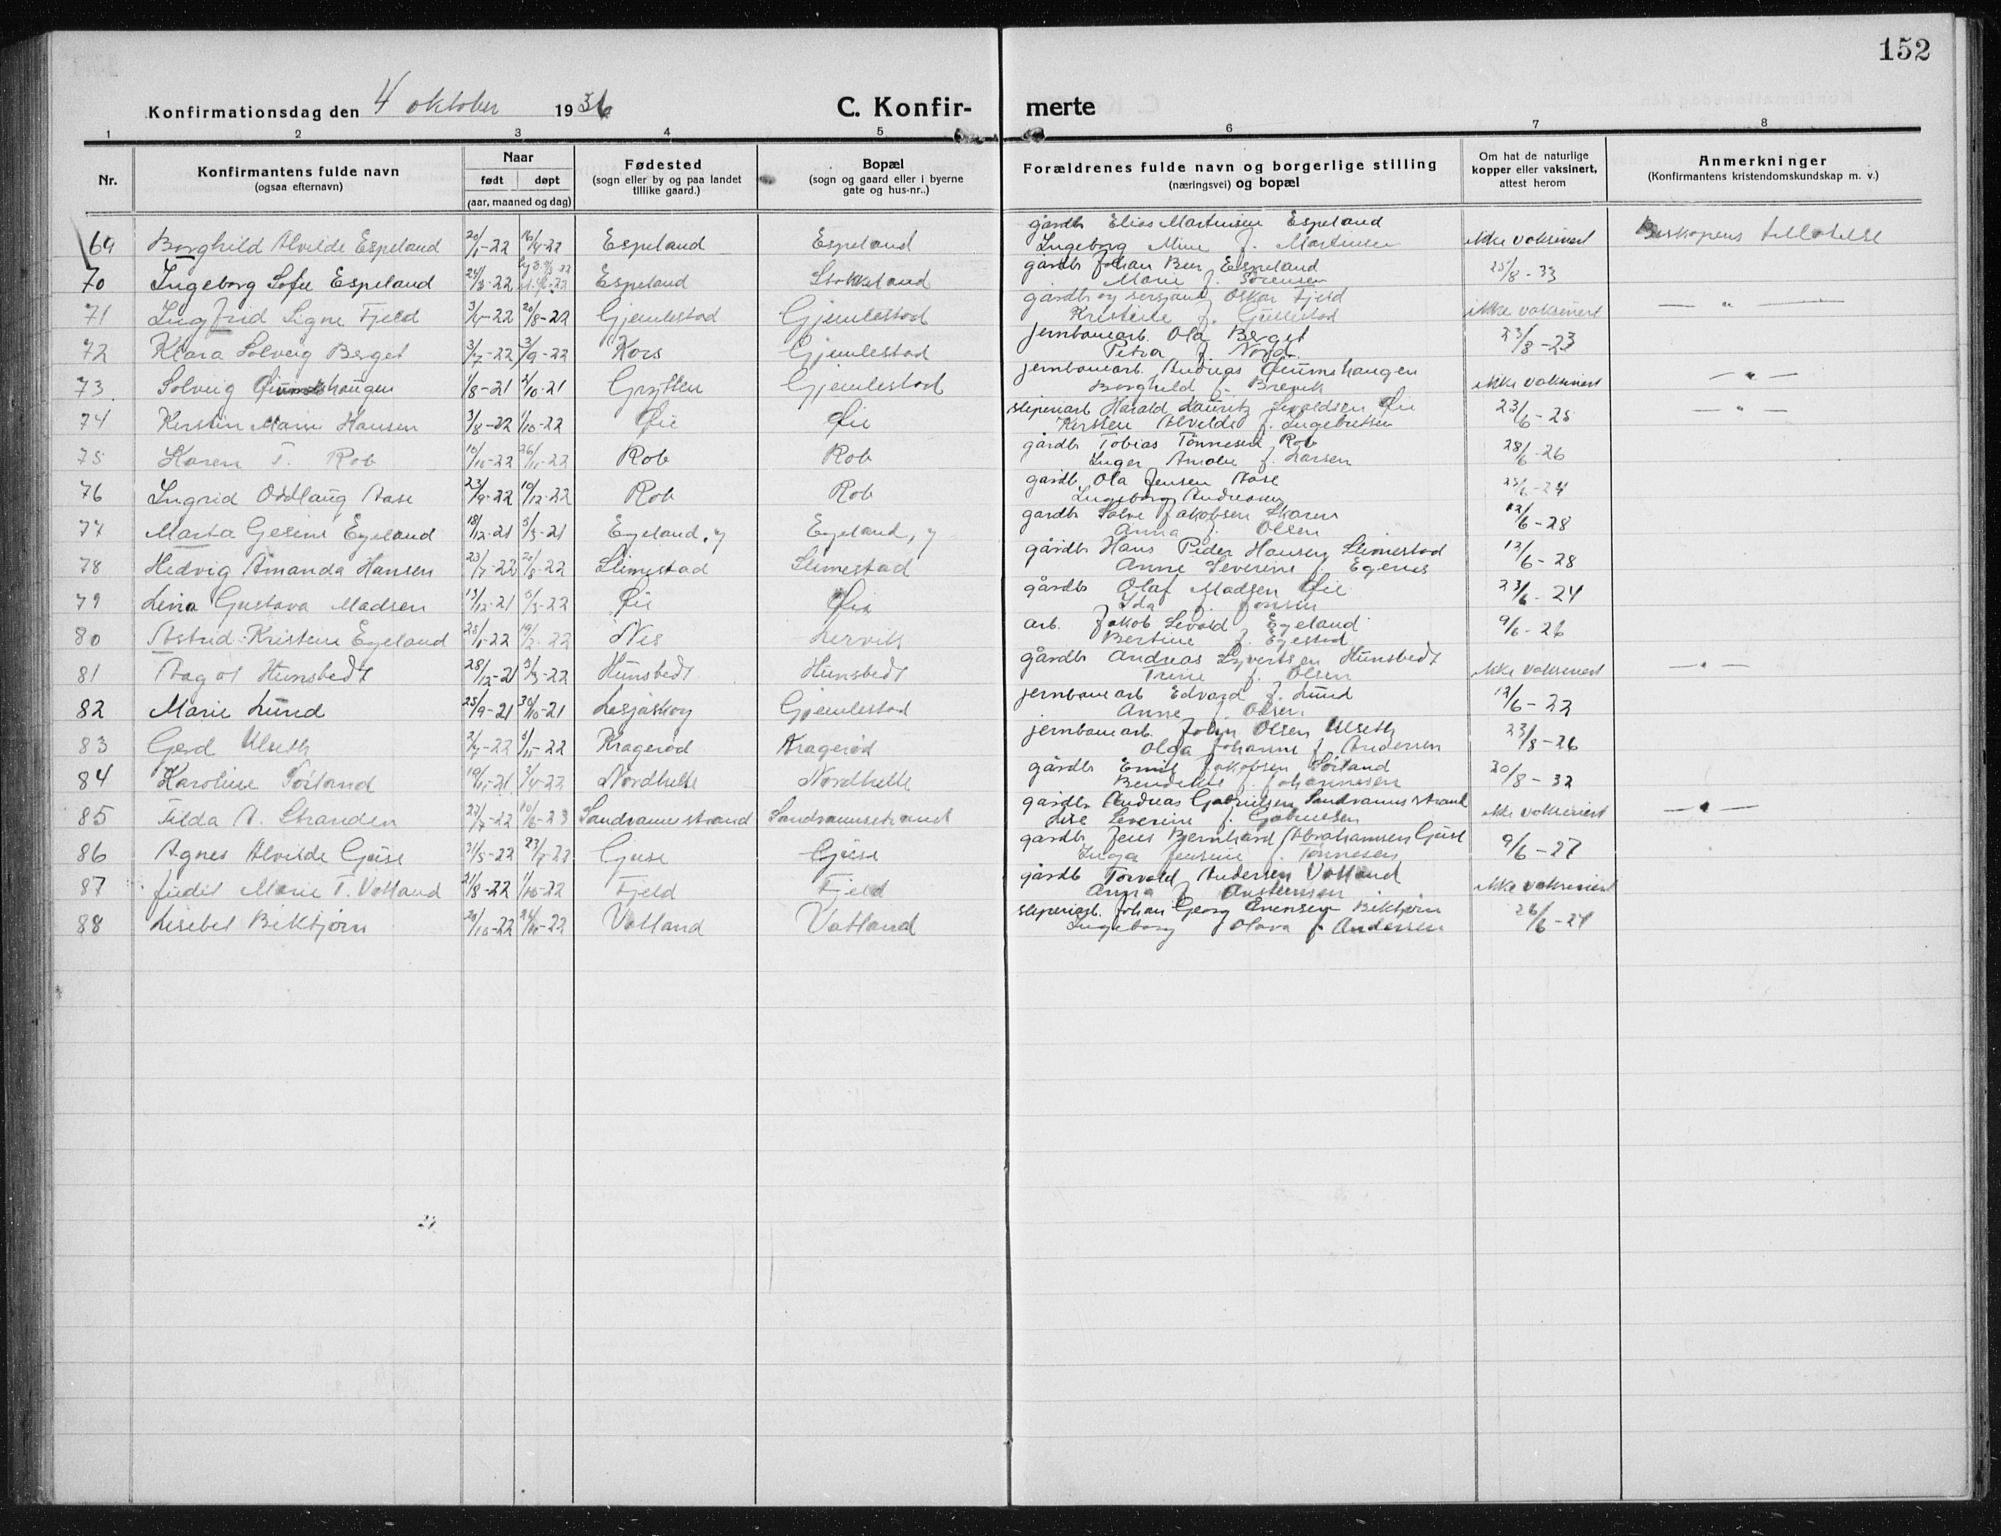 152
Konfirmationsdag den 4 oktober 1936 C. Konfir- merte
1 2 3 4 5 6 7 8
Nr. Konfirmantens fulde navn (ogsaa efternavn) Naar født døpt (aar, maaned og dag) Fødested (sogn eller by og paa landet tillike gaard.) Bopæl (sogn og gaard eller i byerne gate og hus-nr..) Forældrenes fulde navn og borgerlige stilling (næringsvei) og bopæl Om hat de naturlige kopper eller vaksinert, attest herom Anmerkninger (Konfirmantens kristendomskundskap m. v.)
gårdb Elias Martinsen Espeland
69 Borghild Alvilde Espeland 20/1-22 16/4-22 Espeland Espeland Ingeborg Mine f. Martinsen ikke vaksinert Biskopens tillatelse
gårdb Johan Ber Espeland
70 Ingeborg Sofie Espeland 24/3-22 Espeland Stokkeland Marie f. Sørensen 25/8-33
gårdb og sersjant Oskar Fjeld
71 Ingfrid Signe Fjeld 3/4-22 20/8-22 Gjemlestad Gjemlestad Kristine f. Gullestad ikke vaksinert — " —
jernbanearb. Ola Berget
72 Klara Solveig Berget 3/7-22 3/9-22 Kors Gjemlestad Petra f. Nord 23/8-23
jernbanearb. Andreas Øiumshaugen
73 Solveig Øiumshaugen 1/8-21 2/10-21 Grytten Gjemlestad Borghild f. Brevik ikke vaksinert — " —
sliperiarb Harald Lauritz Sevaldsen Øie
74 Kerstin Marie Hansen 3/8-22 1/10-22 Øie Øie Kirsten Alvilde f. Ingebretsen 23/6-25 — " —
gårdb Tobias Tønnesen Rob
75 Karen T. Rob 10/10-22 26/11-22 Rob Rob Inger Amalie f. Larsen 28/6-26
gårdb Ola Jensen Aase
76 Ingrid Oddlaug Aase 23/9-22 10/12-22 Rob Rob Ingeborg Andreasen 25/6-24
gårdb Salve Jakobsen Skaren
77 Marta Gesine Egeland 18/12-21 5/3-21 Egeland, y Egeland, y Anna f. Olsen 12/6-28
gårdb Hans Peder Hansen Slimestad
78 Hedvig Amanda Hansen 23/7-22 20/8-22 Slimestad Slimestad Anne Severine f. Egenes 12/6-28
gårdb Olaf Madsen Øie
79 Livia Gustava Madsen 13/12-21 5/3-22 Øie Øie Ida f. Jonsen 23/6-24
arb. Jakob Sevald Egeland
80 Astrid Kristine Egeland 25/1-22 19/2-22 Nes Lervik Bertine f. Egestad 9/6-26
gårdb Andreas Syvertsen Hunsbedt
81 Aagot Hunsbedt 28/12-21 5/3-22 Hunsbedt Hunsbedt Trine f. Olsen ikke vaksinert — " —
jernbanearb Edvard J. Lund
82 Marie Lund 25/9-21 30/10-21 Lesjaskog Gjemlestad Anne f. Olsen 12/6-22
jernbanearb. John Olsen Ulseth
83 Gerd Ulseth 2/7-22 5/11-22 Kragerød Kragerød Olga Johanne f. Andersen 23/8-26
gårdb Emil Jakobsen Sørland
84 Karoline Sørland 19/11-21 3/4-22 Nordhelle Nordhelle Bendikte f. Johannesen 30/8-32
gårdb Andreas Gabrielsen Sandvannsstrand
85 Tilda A. Stranden 22/7-22 10/6-23 Sandvannsstrand Sandvannsstrand Lise Severine f. Gabrielsen ikke vaksinert — " —
gårdb Jens Bernhard Abrahamsen Gjuse
86 Agnes Alvilde Gjuse 31/5-22 23/7-22 Gjuse Gjuse Inga Jensine f. Tønnesen 9/6-27
gårdb Torvald Andersen Vatland
87 Judit Marie T. Vatland 21/8-22 1/10-22 Fjeld Fjeld Anna f. Austensen ikke vaksinert
sliperiarb. Johan Georg Evensen Bikbjørn
88 Lisebet Bikbjørn 20/10-22 26/11-22 Vatland Vatland Ingeborg Olava f. Andersen 26/6-24